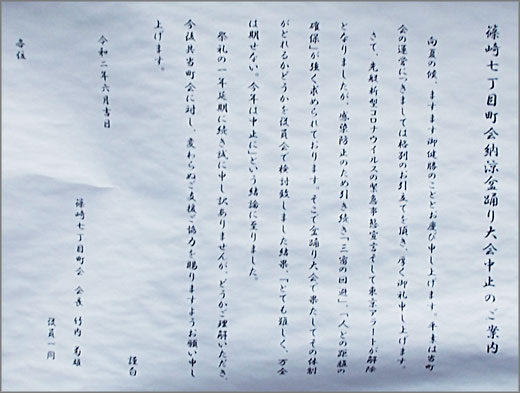 篠崎七丁目町会納涼盆踊り大会中止のご案内
向夏の候、ますます御健勝のこととお慶び申し上げます。平素は当町
会の運営につきましては格別のお引立てを頂き、厚く御礼申し上げます。
さて、先般新型コロナウイルスの緊急事態宣言そして東京アラートが解除
となりましたが、感染防止のため引き続き「三密の回避」、「人との距離の
確保」が強く求められております。そこで盆踊り大会で果たしてその体制
がとれるかどうかを役員会で検討致しました結果、「とても難しく、万全
は期せない。今年は中止に」という結論に至りました。
祭礼の一年延期に続き誠に申し訳ありませんが、どうかご理解いただき、
今後共当町会に対し、変わらぬご支援ご協力を賜りますようお願い申し
上げます。
謹白
令和二年六月吉日
篠崎七丁目町会 会長 竹内 雄
役員一同
各位